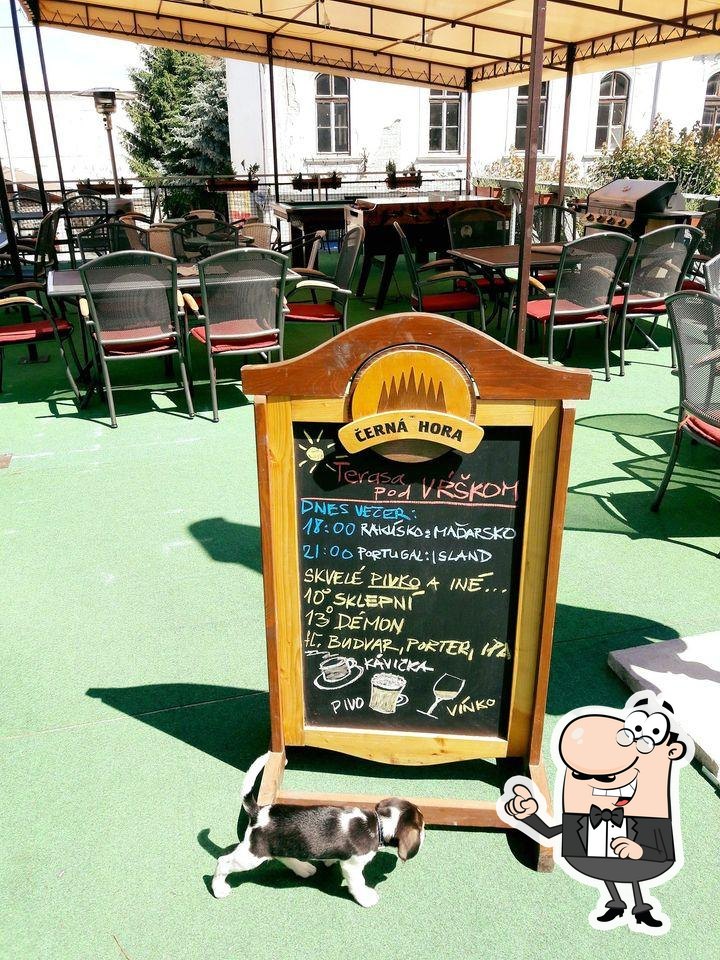 ČERNÁ HORA
Terasa
pod VŔŠKOM
DNES VEČER:
18:00 RAKÚSKO:MAĎARSKO
21:00 PORTUGAL:ISLAND
SKVELÉ PIVKO A INÉ...
10° SKLEPNÍ
13° DÉMON
fľ. BUDVAR, PORTER, IPA
KÁVIČKA
PIVO VÍNKO